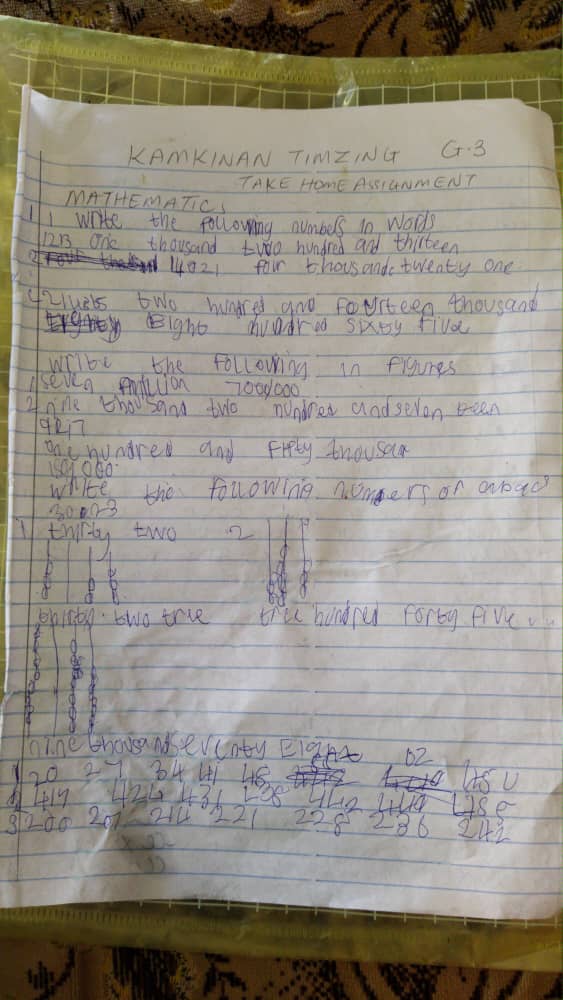 KAMKINAN TIMZING G.3
TAKE HOME ASSIGNMENT
MATHEMATICS
1 1 write the following numbers in words
1213 one thousand two hundred and thirteen
2 4021 four thousand twenty one
two hundred and fourteen thousand
Eight hundred sixty five
write the following in figures
1 seven million 7000000
2 nine thousand two hundred and seven teen
9217
one hundred and fifty thousan
write the following numbers or abacs
1 thirty two 2
thirty two tree tree hundred forty five
nine thousand seventy Eight 02
1 20 27 34 41 48
2 417 424 431 438 442
3 200 207 214 221 228 236 242